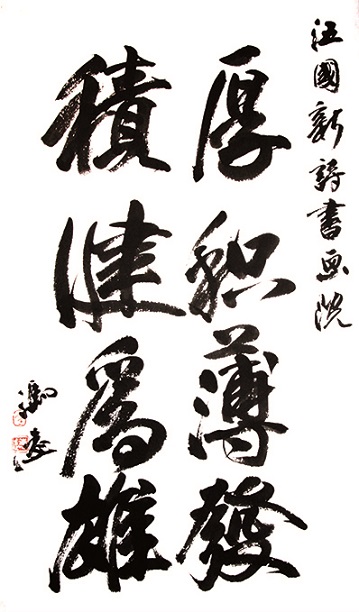 汪國新詩書画院
厚积薄發
積健爲雄